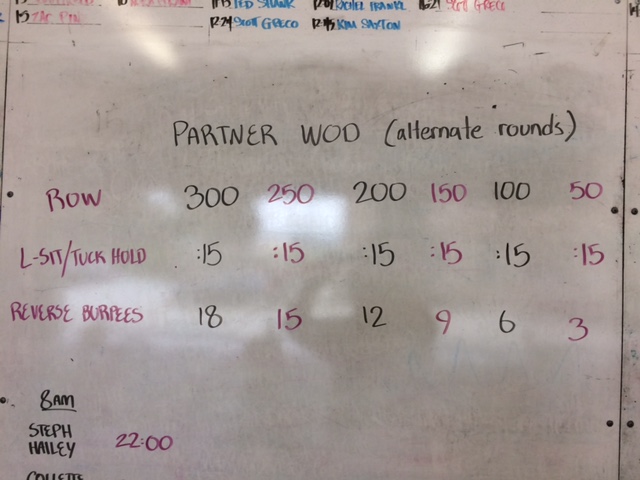 15 ZAC PIN
12:29 SCOTT GRECO
KIM SAXTON
SCOTT GRECO
PARTNER WOD (alternate rounds)
ROW 300 250 200 150 100 50
L-SIT/TUCK HOLD :15 :15 :15 :15 :15 :15
REVERSE BURPEES 18 15 12 9 6 3
8AM
STEPH
HAILEY 22:00
COLLETTE